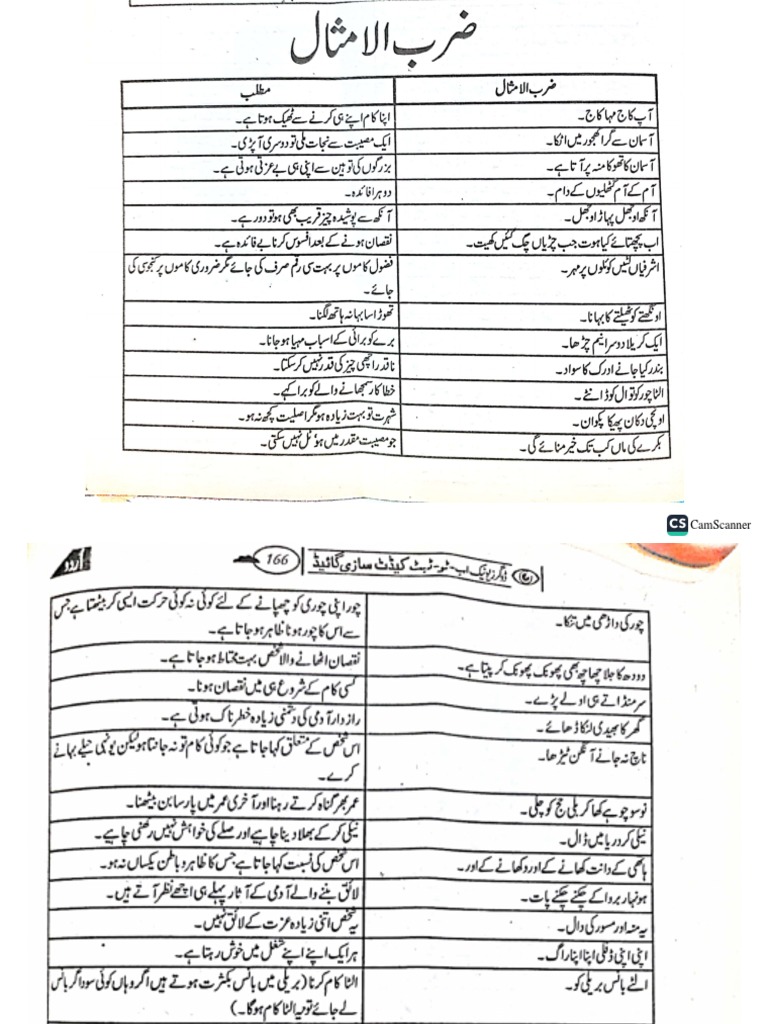 ضرب الامثال
ضرب الامثال	مطلب
آپ کاج مہا کاج۔	اپنا کام اپنے ہی کرنے سے ٹھیک ہوتا ہے۔
آسمان سے گرا کھجور میں اٹکا۔	ایک مصیبت سے نجات ملی تو دوسری آ پڑی۔
آسمان کا تھوکا منہ پر آتا ہے۔	بزرگوں کی توہین سے اپنی ہی بے عزتی ہوتی ہے۔
آم کے آم گٹھلیوں کے دام۔	دوہرا فائدہ۔
آنکھ اوجھل پہاڑ اوجھل۔	آنکھ سے پوشیدہ چیز قریب بھی ہو تو دور ہے۔
اب پچھتائے کیا ہوت جب چڑیاں چگ گئیں کھیت۔	نقصان ہونے کے بعد افسوس کرنا بے فائدہ ہے۔
اشرفیاں لٹیں کوئلوں پر مہر۔	فضول کاموں پر بہت سی رقم صرف کی جائے مگر ضروری کاموں پر کنجوسی کی
جائے۔
اونگھتے کو ٹھیلتے کا بہانا۔	تھوڑا سا بہانہ ہاتھ لگنا۔
ایک کریلا دوسرا نیم چڑھا۔	برے کو برائی کے اسباب مہیا ہو جانا۔
بندر کیا جانے ادرک کا سواد۔	ناقدر اچھی چیز کی قدر نہیں کر سکتا۔
الٹا چور کوتوال کو ڈانٹے۔	خطا کار سمجھانے والے کو برا کہے۔
اونچی دکان پھیکا پکوان۔	شہرت تو بہت زیادہ ہو مگر اصلیت کچھ نہ ہو۔
بکرے کی ماں کب تک خیر منائے گی۔	جو مصیبت مقدر میں ہو ٹل نہیں سکتی۔
CS CamScanner
ڈوگرز یونیک اپ۔ٹو۔ڈیٹ کیڈٹ سازی گائیڈ	166	اردو
چور کی داڑھی میں تنکا۔	چور اپنی چوری کو چھپانے کے لئے کوئی نہ کوئی حرکت ایسی کر بیٹھتا ہے جس
سے اس کا چور ہونا ظاہر ہو جاتا ہے۔
دودھ کا جلا چھاچھ بھی پھونک پھونک کر پیتا ہے۔	نقصان اٹھانے والا شخص بہت محتاط ہو جاتا ہے۔
سر منڈاتے ہی اولے پڑے۔	کسی کام کے شروع ہی میں نقصان ہونا۔
گھر کا بھیدی لنکا ڈھائے۔	رازدار آدمی کی دشمنی زیادہ خطرناک ہوتی ہے۔
ناچ نہ جانے آنگن ٹیڑھا۔	اس شخص کے متعلق کہا جاتا ہے جو کوئی کام تو نہ جانتا ہو لیکن یونہی حیلے بہانے
کرے۔
نو سو چوہے کھا کر بلی حج کو چلی۔	عمر بھر گناہ کرتے رہنا اور آخری عمر میں پارسا بن بیٹھنا۔
نیکی کر دریا میں ڈال۔	نیکی کر کے بھلا دینا چاہیے اور صلے کی خواہش نہیں رکھنی چاہیے۔
ہاتھی کے دانت کھانے کے اور دکھانے کے اور۔	اس شخص کی نسبت کہا جاتا ہے جس کا ظاہر و باطن یکساں نہ ہو۔
ہونہار بروا کے چکنے چکنے پات۔	لائق بننے والے آدمی کے آثار پہلے ہی اچھے نظر آتے ہیں۔
یہ منہ اور مسور کی دال۔	یہ شخص اتنی زیادہ عزت کے لائق نہیں۔
اپنی اپنی ڈفلی اپنا اپنا راگ۔	ہر ایک اپنے اپنے شغل میں خوش رہتا ہے۔
الٹے بانس بریلی کو۔	الٹا کام کرنا (بریلی میں بانس بکثرت ہوتے ہیں اگر وہاں کوئی سوداگر بانس
لے جائے تو یہ الٹا کام ہوگا۔)